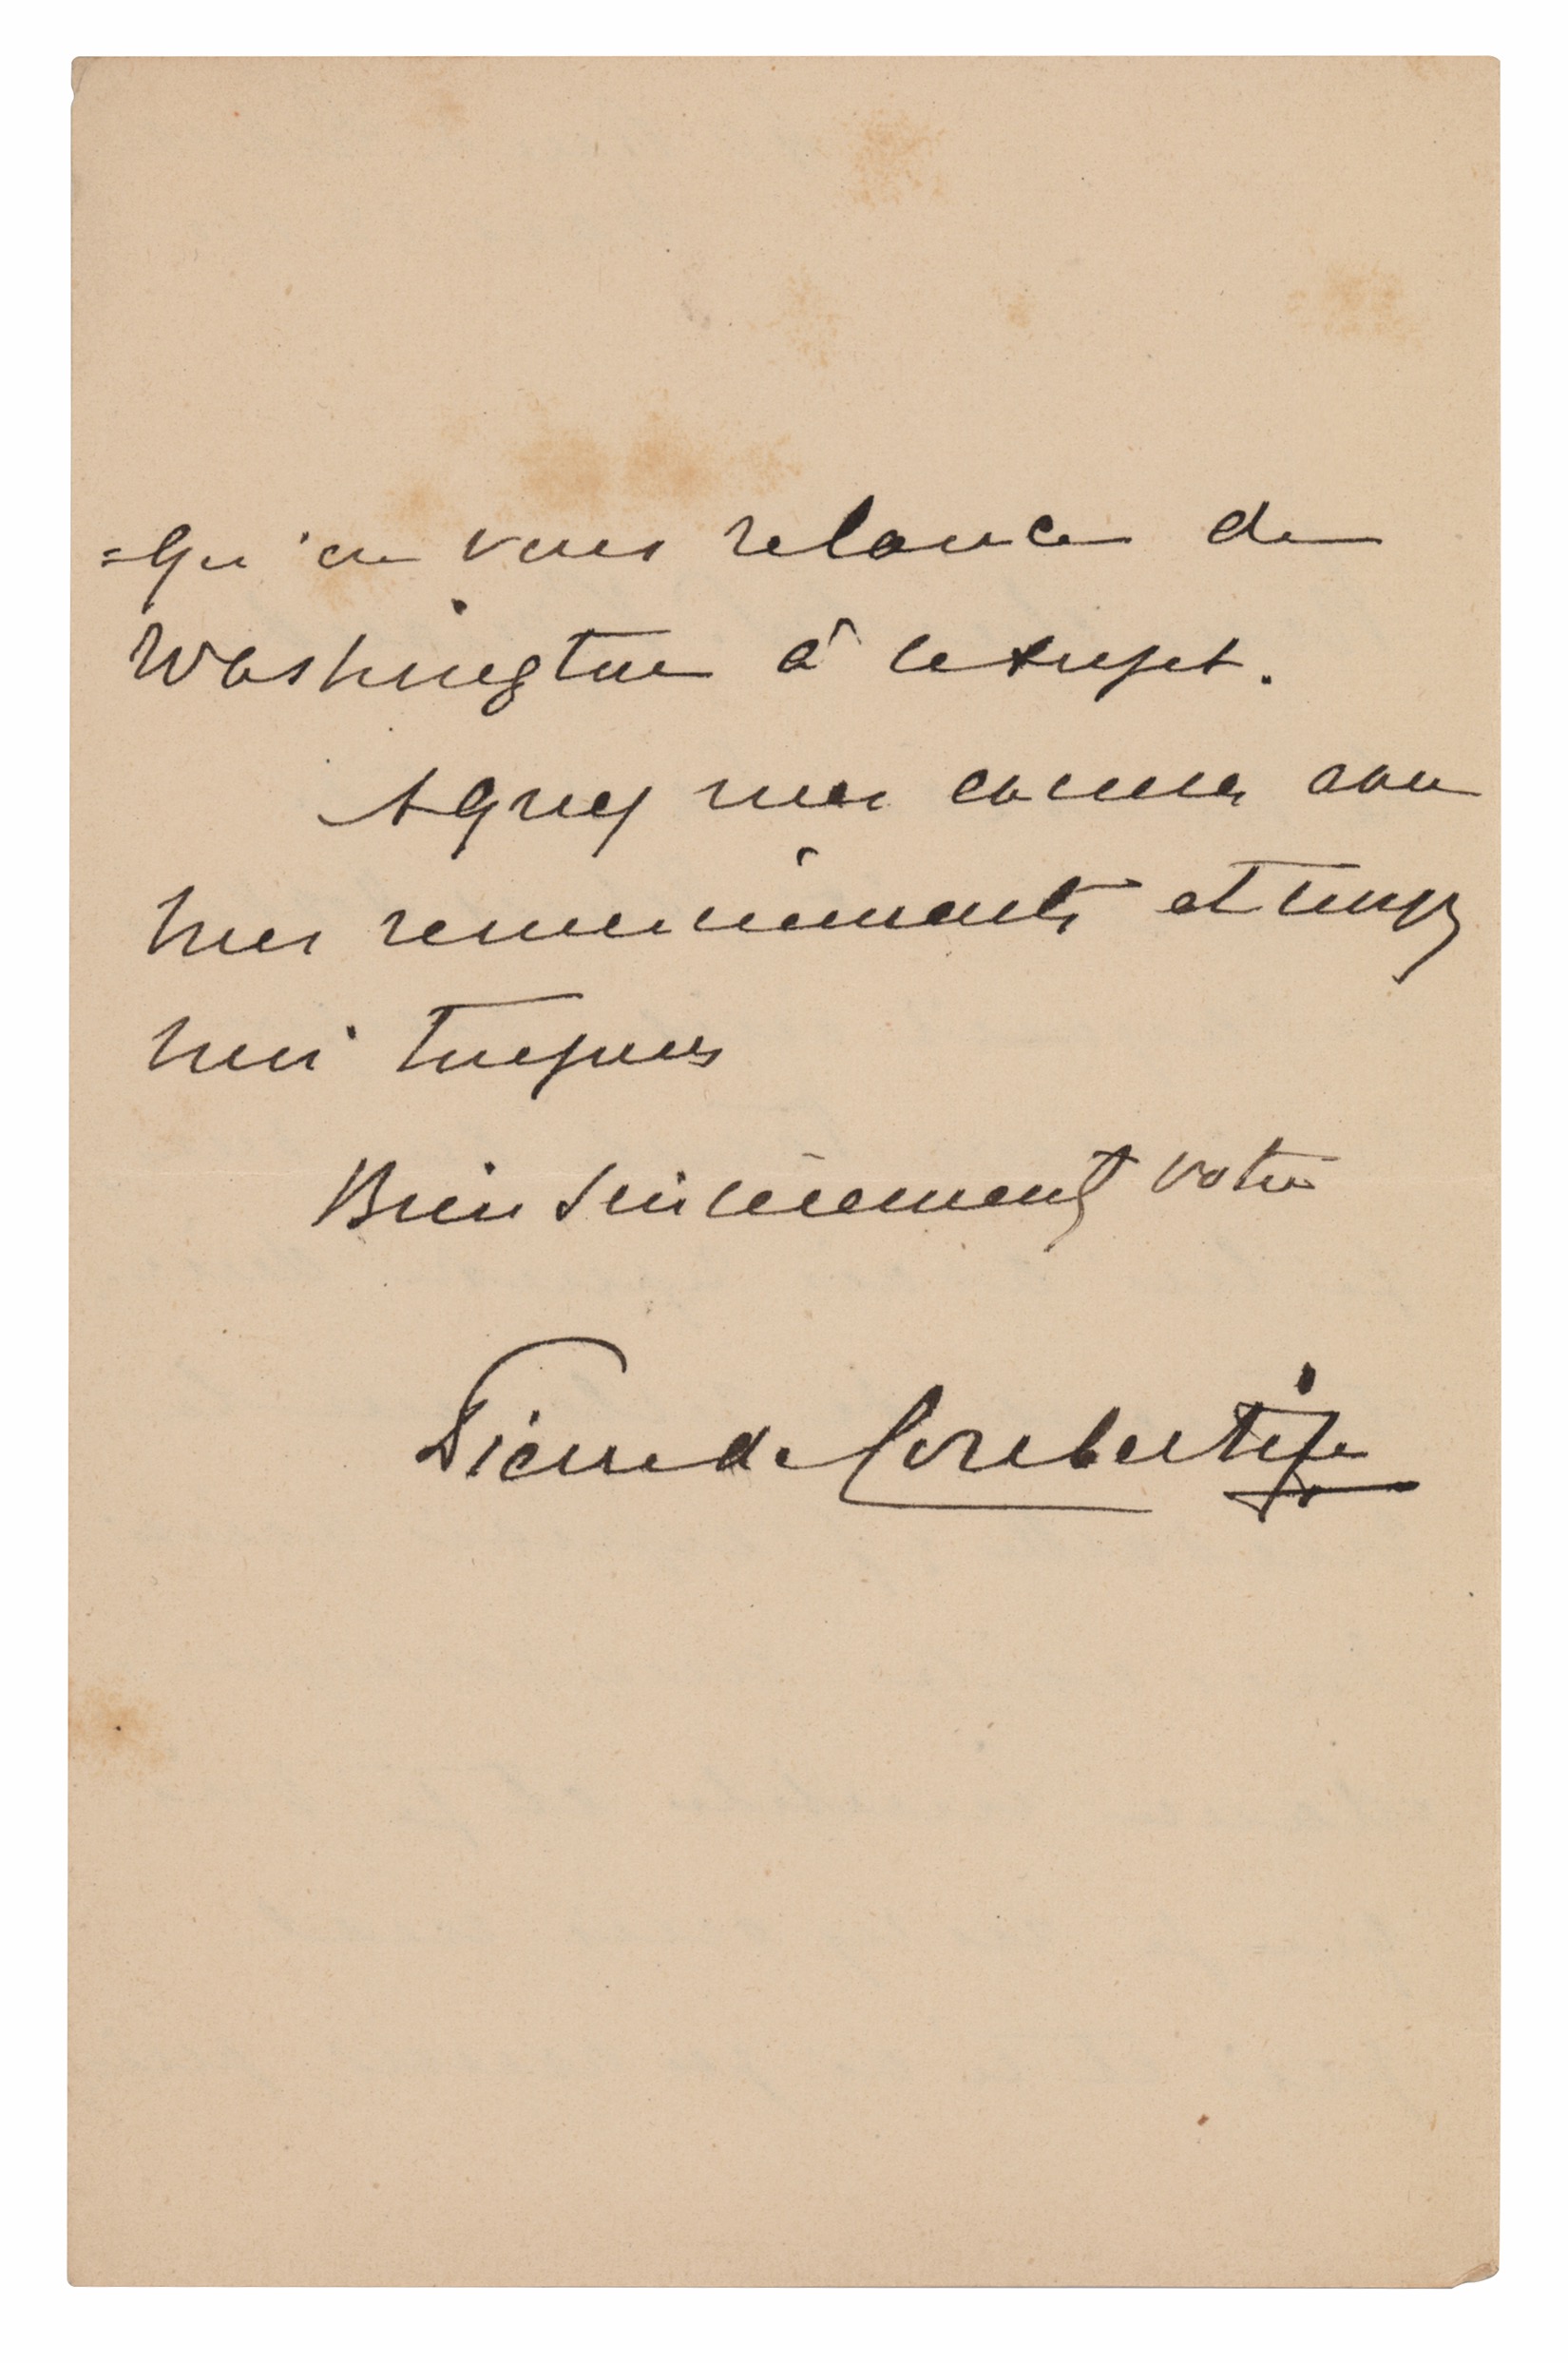 =qu'on vous relance de
Washington à ce sujet.
Agréez mes excuses avec
mes remerciements et croyez
moi toujours
Bien sincèrement votre
Pierre de Coubertin